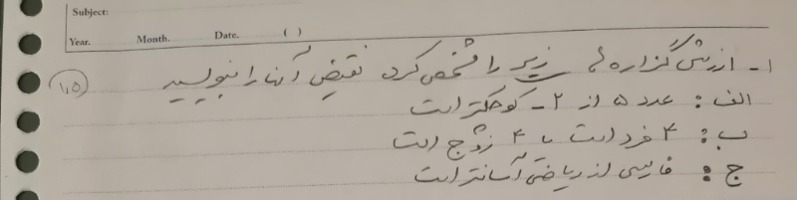 Subject:
Year. Month. Date. ( )
۱- ارزش گزاره های زیر را مشخص کرده نقیض آنها را بنویسید
۱,۵
الف: عدد ۵ از ۲- کوچکتر است
ب: ۴ فرد است یا ۴ زوج است
ج: فارسی از ریاضی آسانتر است